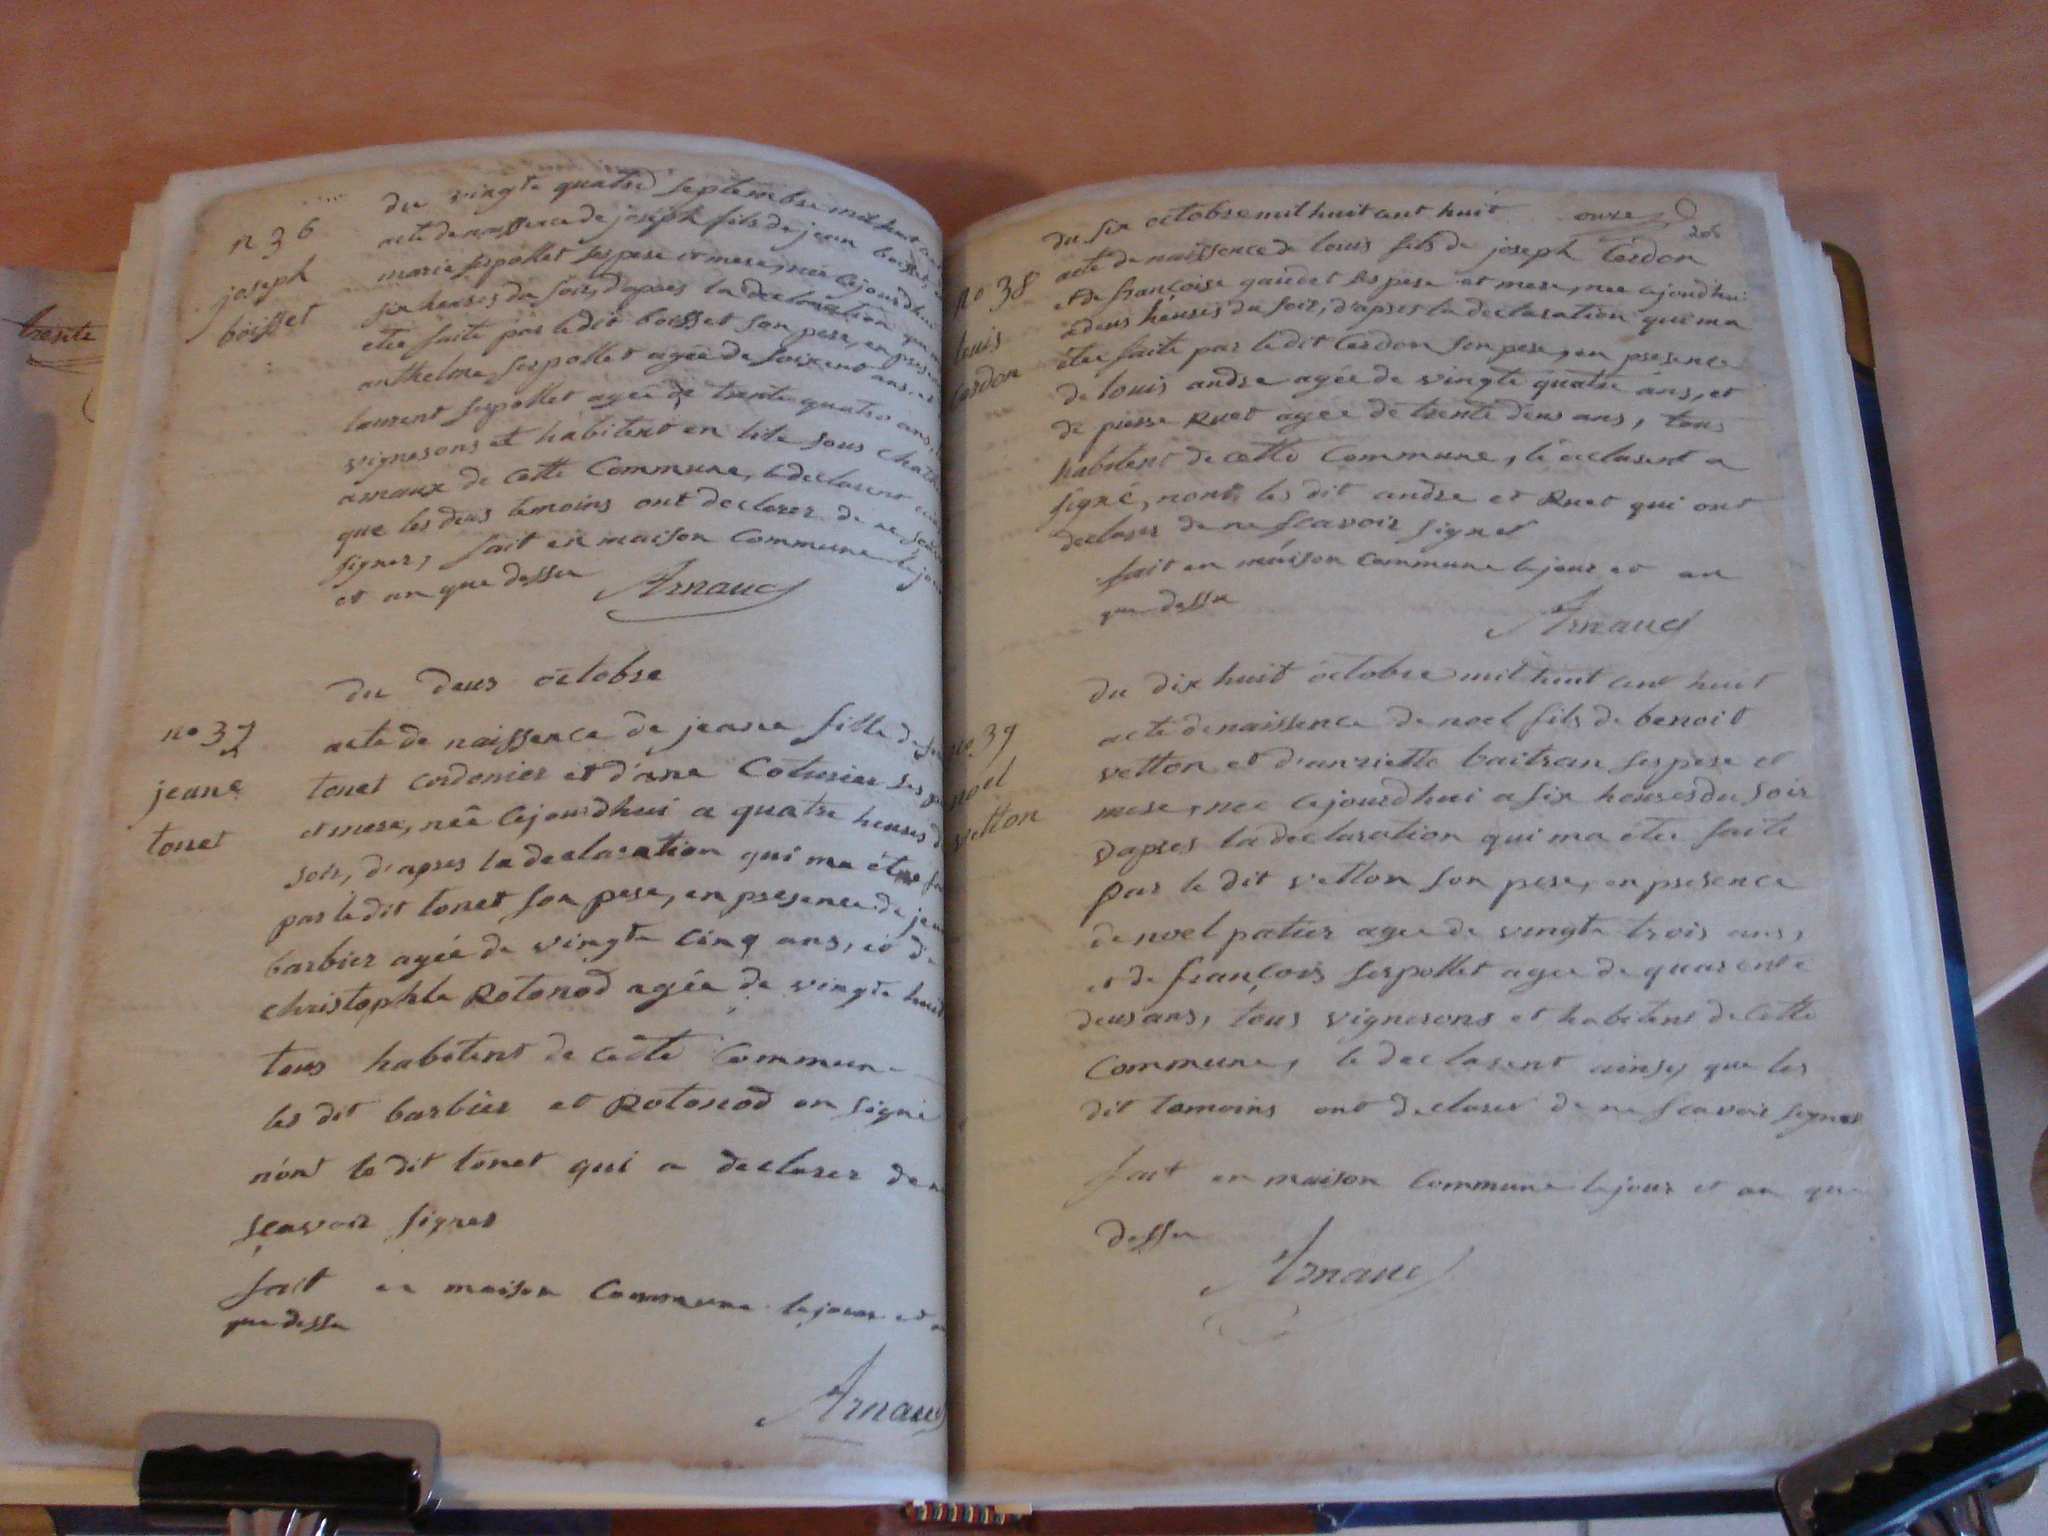 trente
n 36
joseph
boisset
du vingte quatre septembre mil huit
acte de naissence de joseph fils de jean boisset
marie serpollet ses pere et mere, née cejourdhui
six heures du soir, d'apres la declaration qui
etée faite par ledit boisset son pere, en
anthelme serpollet agée de soixent ans, et
laurent serpollet agée de trente quatre ans,
vignerons et habitent en lite sous
arnaux de cette Commune, le declarent
que les deus temoins ont declarer de ne
signer, fait en maison Commune le jour
et an que dessu
Arnaud
du deus octobre
no 37
jeane
tonet
acte de naissence de jeane fille de
tonet cordonier et d'ane Coturier ses
et mere, née cejourdhui a quatre heures
soir, d'apres la declaration qui ma
par le dit tonet son pere, en presence de
barbier agée de vingte cinq ans, et de
christophle Rotonod agée de vingte huit
tous habitent de cette Commune
les dit barbier et Rotonod on signé
nont le dit tonet qui a declarer de
sçavoir signer
fait en maison Commune le jour et
que dessu
Arnaud
du six octobre mil huit cent huit onze
no 38
louis
Cordon
acte de naissence de louis fils de joseph Cordon
et de françoise gaudet ses pere et mere, nee cejourdhui
a deus heures du soir, d'apres la declaration qui ma
étée faite par le dit Cordon son pere, en presence
de louis andre agée de vingte quatre ans, et
de pierre Ruet agée de trente deus ans, tous
habitent de cette Commune, le declarent a
signé, nont les dit andre et Ruet qui ont
declarer de ne sçavoir signer
fait en maison Commune le jour et an
que dessu
Arnaud
du dix huit octobre mil huit cent huit
no 39
noel
vetton
acte de naissence de noel fils de benoit
vetton et d'anriette baitran ses pere et
mere, nee cejourdhui a six heures du soir
dapres la declaration qui ma étée faite
par le dit vetton son pere, en presence
de noel patier agee de vingte trois ans,
et de françois serpollet agee de quarente
deus ans, tous vignerons et habitent de cette
Commune, le declarent ainsy que les
dit temoins ont declarer de ne sçavoir signer
fait en maison Commune le jour et an que
dessu
Arnaud